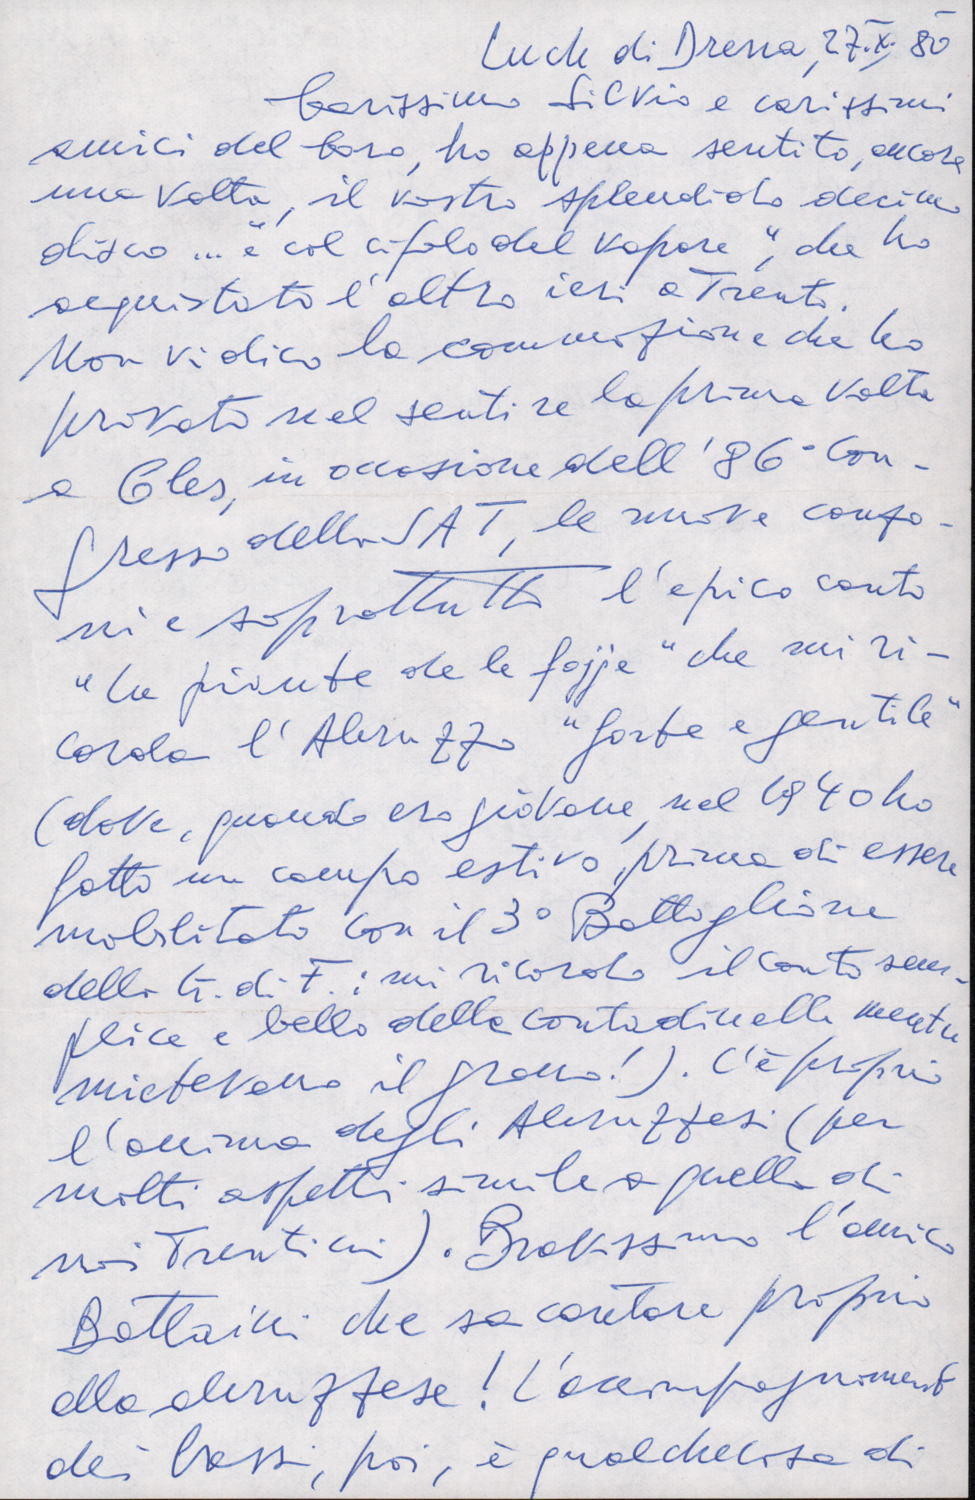 Luch di Dresa, 27.X.80
Carissimo Silvio e carissimi
amici del Coro, ho appena sentito, ancora
una volta, il vostro splendido decimo
disco ... "è col cifolo del vapore", che ho
acquistato l'altro ieri a Trento.
Non vi dico la commozione che ho
provato nel sentire la prima volta
a Cles, in occasione dell'86° Con-
gresso della SAT, le nuove canzo-
ni e soprattutto l'epico canto
"Lu piante de le fojje" che mi ri-
corda l'Abruzzo "forte e gentile"
(dove, quando ero giovane, nel 1940 ho
fatto un campo estivo, prima di essere
mobilitato con il 3° Battaglione
della G. di F.: mi ricordo il canto sem-
plice e bello delle contadinelle mentre
mietevano il grano!). C'è proprio
l'anima degli Abruzzesi (per
molti aspetti simile a quella di
noi Trentini). Bravissimo l'amico
Battaini che sa cantare proprio
alla abruzzese! L'accompagnamento
dei bassi, poi, è qualchecosa di